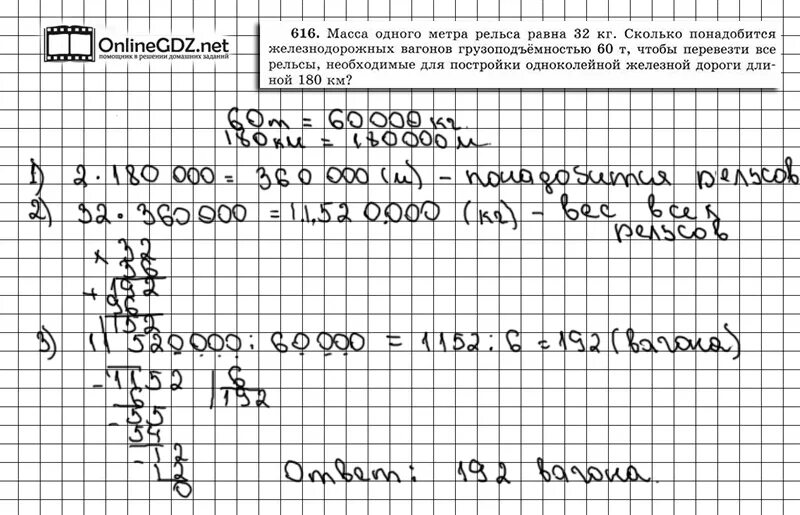 OnlineGDZ.net
помощник в решении домашних заданий
616. Масса одного метра рельса равна 32 кг. Сколько понадобится
железнодорожных вагонов грузоподъёмностью 60 т, чтобы перевезти все
рельсы, необходимые для постройки одноколейной железной дороги дли-
ной 180 км?
60т = 60000 кг.
180км = 180000 м
1) 2 · 180 000 = 360 000 (м) - понадобится рельсов
2) 32 · 360000 = 11,520,000 (кг) - вес всех
рельсов
× 32
36
+ 192
96
1152
3) 11 520000 : 60000 = 1152 : 6 = 192 (вагона)
- 1152 | 6
6 192
- 55
54
- 12
12
0
Ответ: 192 вагона.